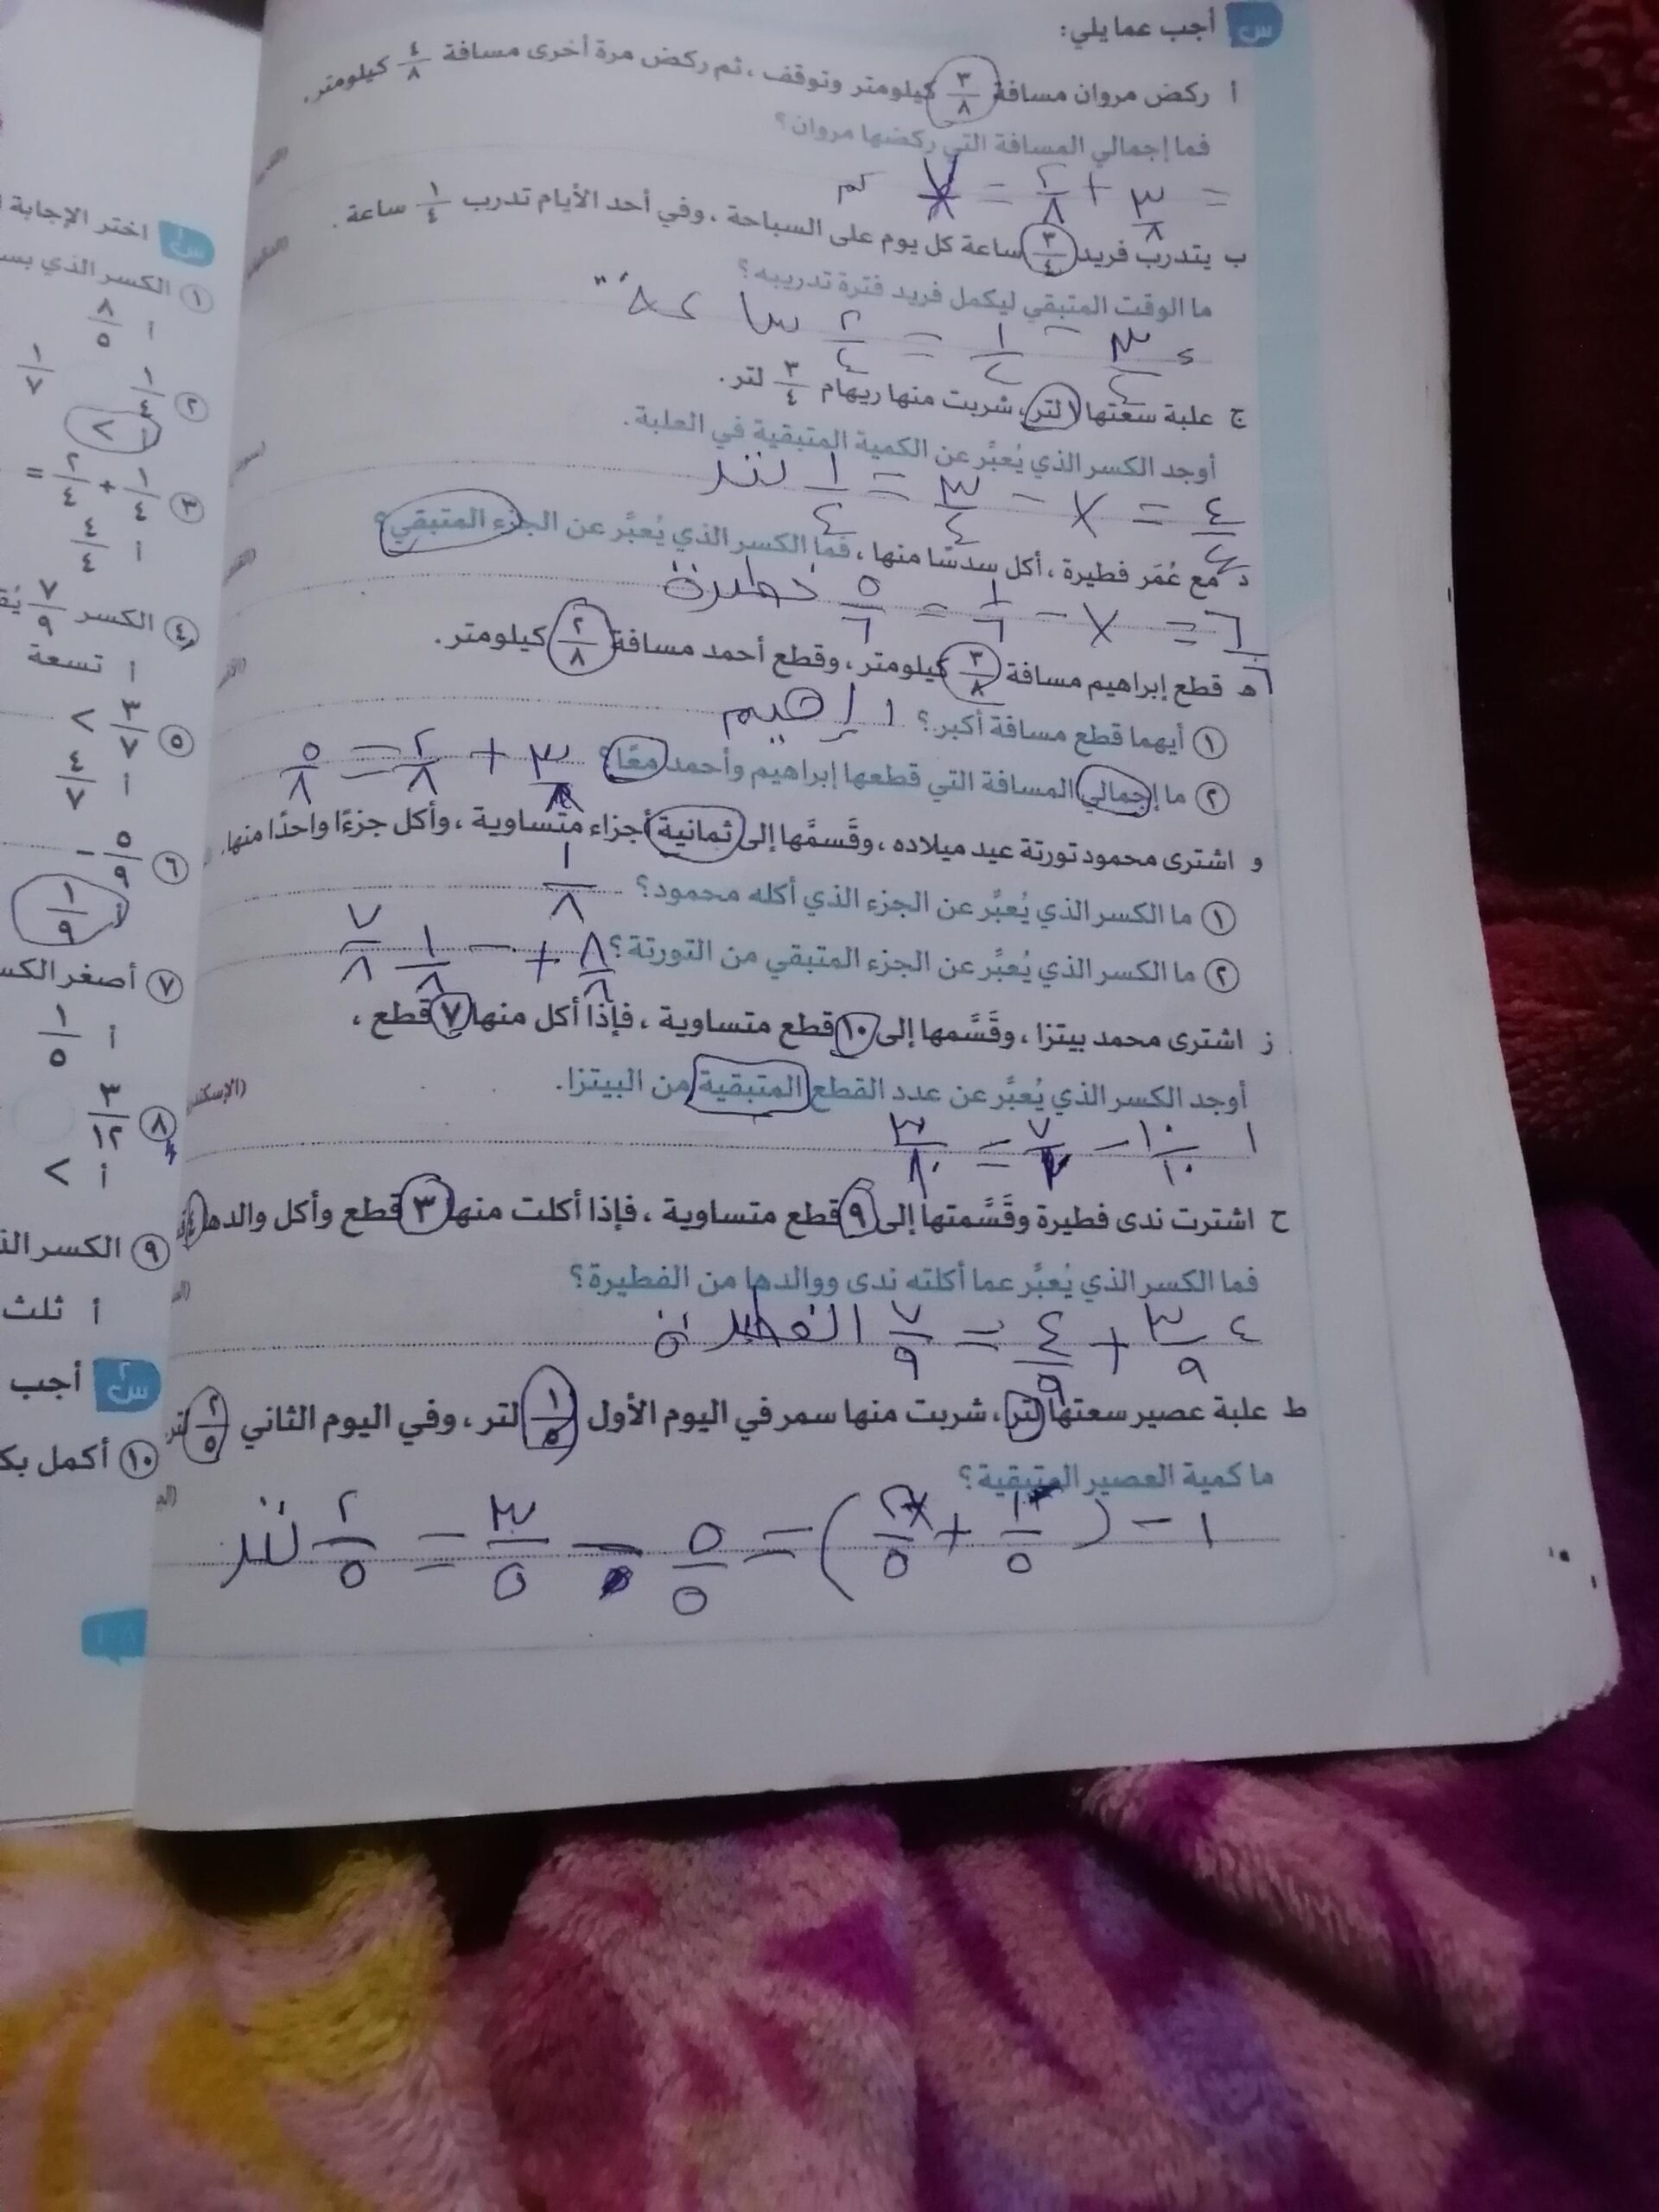 س أجب عما يلي:
أ ركض مروان مسافة ٣/٨ كيلومتر وتوقف، ثم ركض مرة أخرى مسافة ٤/٨ كيلومتر.
فما إجمالي المسافة التي ركضها مروان؟
= ٣/٨ + ٢/٨ = ٧/٨ كم
ب يتدرب فريد ٣/٤ ساعة كل يوم على السباحة، وفي أحد الأيام تدرب ١/٤ ساعة.
ما الوقت المتبقي ليكمل فريد فترة تدريبه؟
٣/٤ - ١/٤ = ٢/٤ ساعة
ج علبة سعتها ١ لتر، شربت منها ريهام ٣/٤ لتر.
أوجد الكسر الذي يُعبَّر عن الكمية المتبقية في العلبة.
٤/٤ = ١ - ٣/٤ = ١/٤ لتر
د مع عُمَر فطيرة، أكل سدسًا منها، فما الكسر الذي يُعبَّر عن الجزء المتبقي؟
٦/٦ = ١ - ١/٦ = ٥/٦ فطيرة
ه قطع إبراهيم مسافة ٣/٨ كيلومتر، وقطع أحمد مسافة ٢/٨ كيلومتر.
١ أيهما قطع مسافة أكبر؟ ابراهيم
٢ ما إجمالي المسافة التي قطعها إبراهيم وأحمد معًا؟ ٣/٨ + ٢/٨ = ٥/٨
و اشترى محمود تورتة عيد ميلاده، وقَسمَّها إلى ثمانية أجزاء متساوية، وأكل جزءًا واحدًا منها.
١ ما الكسر الذي يُعبَّر عن الجزء الذي أكله محمود؟ ١/٨
٢ ما الكسر الذي يُعبَّر عن الجزء المتبقي من التورتة؟ ٨/٨ + - ١/٨ ٧/٨
ز اشترى محمد بيتزا، وقَسَّمها إلى ١٠ قطع متساوية، فإذا أكل منها ٧ قطع،
أوجد الكسر الذي يُعبَّر عن عدد القطع المتبقية من البيتزا.
(الإسكند
١ ١٠/١٠ - ٧ = ٣/١٠
ح اشترت ندى فطيرة وقَسَّمتها إلى ٩ قطع متساوية، فإذا أكلت منها ٣ قطع وأكل والدها ٤
فما الكسر الذي يُعبَّر عما أكلته ندى ووالدها من الفطيرة؟
٣/٩ + ٤/٩ = ٧/٩ الفطيرة
ط علبة عصير سعتها لتر، شربت منها سمر في اليوم الأول ١/٥ لتر، وفي اليوم الثاني ٢/٥ لتر
ما كمية العصير المتبقية؟
١ - (١/٥ + ٢/٥) = ٥/٥ - ٣/٥ = ٢/٥ لتر
س١ اختر الإجابة
١ الكسر الذي يس
أ ٨/٥
٢ ١/٤ ١/٧
أ >
٣ ١/٤ + ٢/٤ =
أ ٤/٤
٤ الكسر ٧/٩ يُق
أ تسعة
٥ ٣/٧ >
أ ٤/٧
٦ ٥/٩ -
أ ١/٩
٧ أصغر الكس
أ ١/٥
٨ ٣/١٢
أ >
٩ الكسر الذ
أ ثلث
س٢ أجب
١٠ أكمل بك